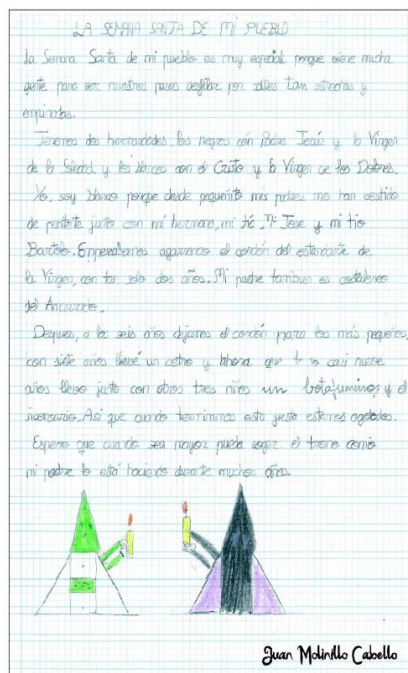 LA SEMANA SANTA DE MI PUEBLO
La Semana Santa de mi pueblo es muy especial porque viene mucha
gente para ver nuestros pasos desfilar por calles tan estrechas y
empinadas.
Tenemos dos hermandades los negros con Padre Jesús y la Virgen
de la Soledad y los blancos con el Cristo y la Virgen de los Dolores.
Yo, soy blanco porque desde pequeñito mis padres me han vestido
de penitente junto con mi hermano, mi tio
Bartolo. Empezabamos agarrando el cordón del estandarte de
la Virgen, con tan solo dos años. Mi padre tambien es costalero
del
Despues, a los seis años dejamos el cordón para los más pequeños,
con siete años llevé un cetro y ahora que casi nueve
años llevo junto con otros tres niños un botafumeiros y el
incensario. Asi que cuando terminamos esta fiesta estamos agotados.
Espero que cuando sea mayor pueda coger el trono como
mi padre lo está haciendo durante muchos años.
Juan Molinillo Cabello